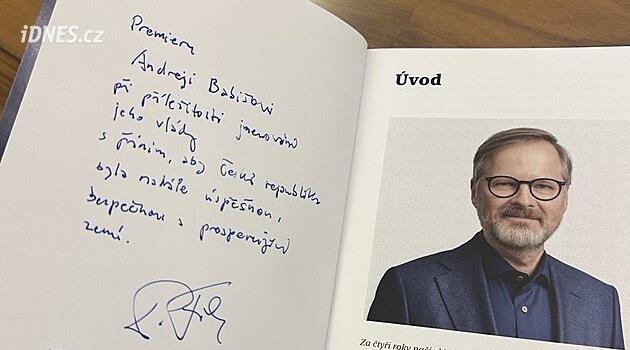 iDNES.cz
Premieru
Andreji Babišovi
při příležitosti jmenování
jeho vlády
s přáním, aby Česká republika
byla nadále úspěšnou,
bezpečnou a prosperující
zemí.
Úvod
Za čtyři roky